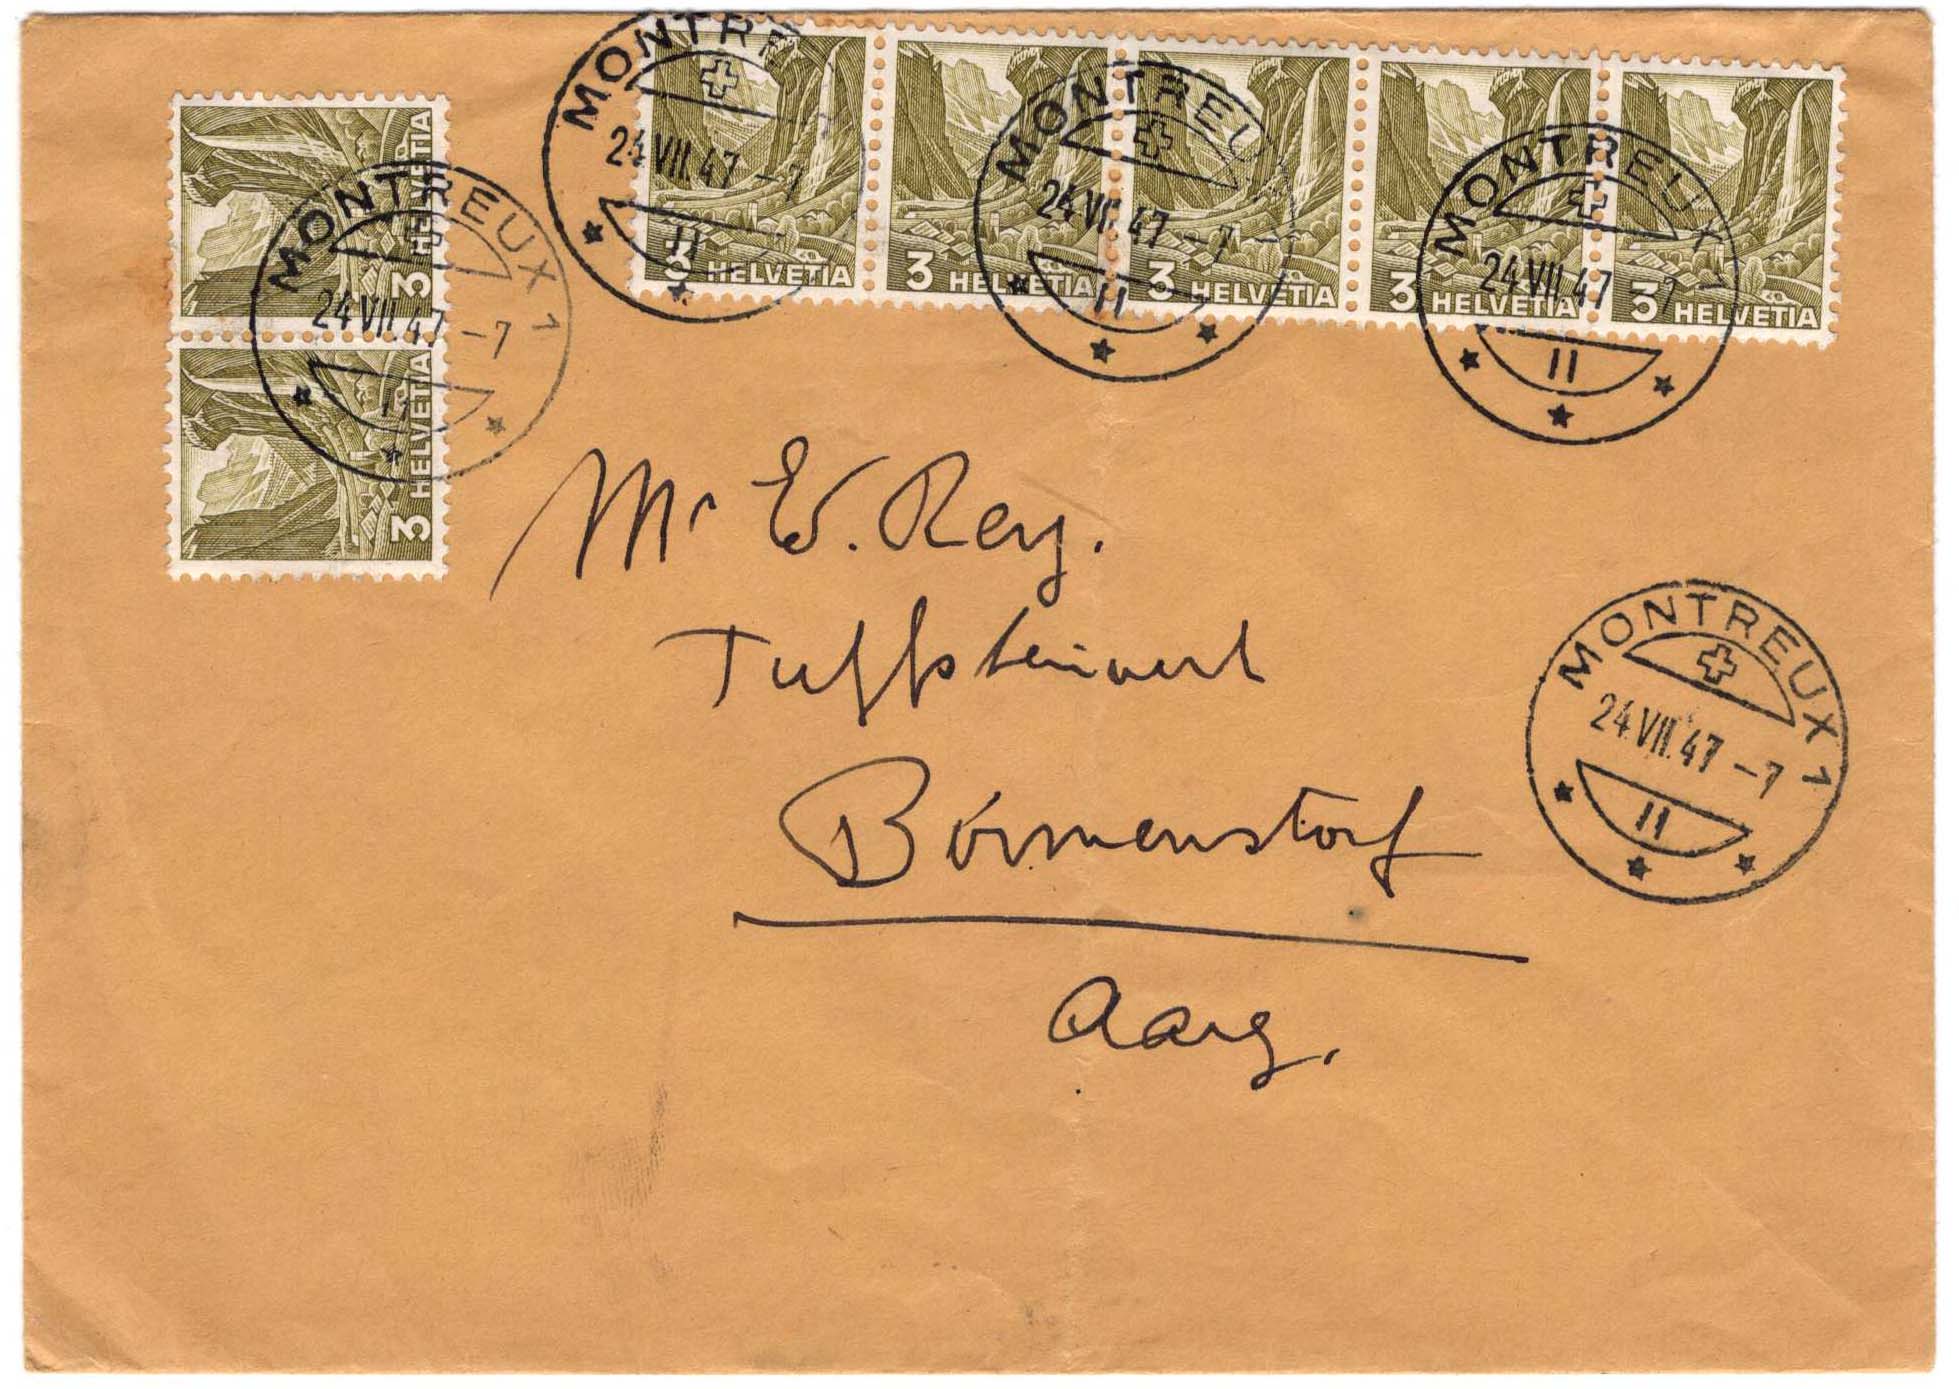 MONTRE
24.VII.47 -7
II
MONTREU
24.VII.47 -7
II
MONTREUX 1
24.VII.47 7
II
3 HELVETIA
3 HELVETIA
3 HELVETIA
3 HELVETIA
3 HELVETIA
MONTREUX 1
24.VII.47 -7
II
3 HELVETIA
3 HELVETIA
Mr E. Rey.
Tuffsteinwerk
Birmenstorf
Aarg.
MONTREUX 1
24.VII.47 -7
II